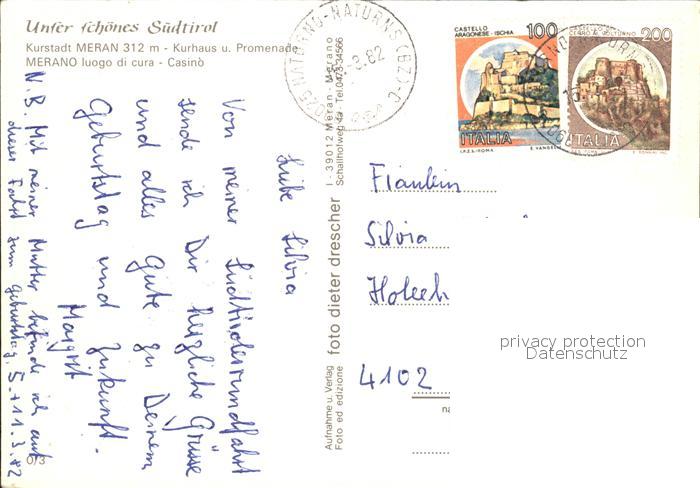 Unser schönes Südtirol
Kurstadt MERAN 312 m - Kurhaus u. Promenade
MERANO luogo di cura - Casinò
Liebe Silvia
Von meiner Südtirolerrundfahrt
sende ich Dir herzliche Grüsse
und alles Gute zu Deinem
Geburtstag und Zukunft.
Margrit
N.B. Mit meiner Mutter befinde ich auf
dieser Fahrt zum Geburtstag, 5.+11.3.82
6/3
Aufnahme u. Verlag
Foto ed edizione
foto dieter drescher
I - 39012 Meran - Merano
Schallhofweg 4a - Tel. 0473-34566
39025 NATURNO-NATURNS (BZ)-C
-3.82
CASTELLO
ARAGONESE - ISCHIA
100
ITALIA
I.P.Z.S.-ROMA
E. VANGELLI
CERRO AL VOLTURNO
200
ITALIA
Fräulein
Silvia
4102
privacy protection
Datenschutz